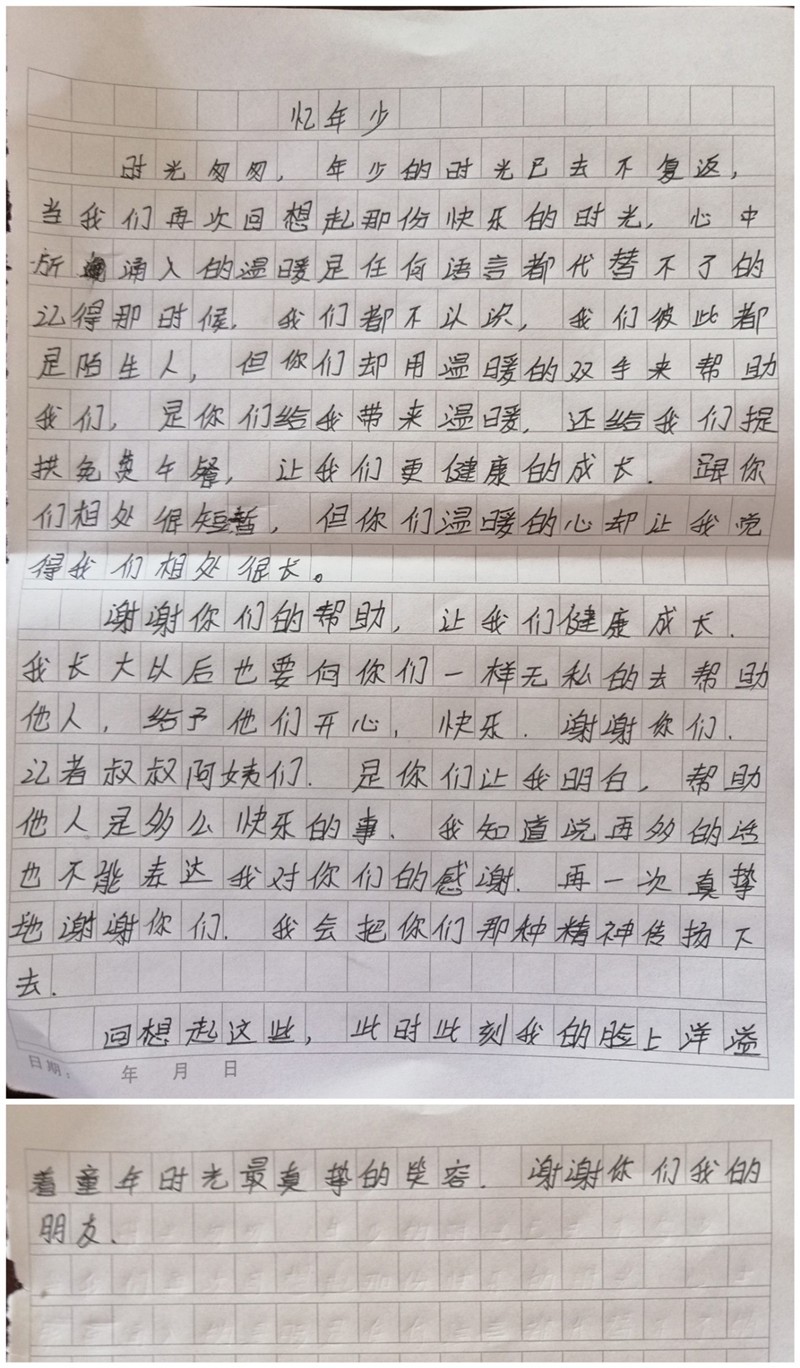 忆年少
时光匆匆，年少的时光已去不复返，
当我们再次回想起那份快乐的时光，心中
所涌入的温暖是任何语言都代替不了的
记得那时候，我们都不认识，我们彼此都
是陌生人，但你们却用温暖的双手来帮助
我们，是你们给我带来温暖，还给我们提
拱免费午餐，让我们更健康的成长．跟你
们相处很短暂，但你们温暖的心却让我觉
得我们相处很长。
谢谢你们的帮助，让我们健康成长．
我长大以后也要向你们一样无私的去帮助
他人，给予他们开心，快乐．谢谢你们．
记者叔叔阿姨们．是你们让我明白，帮助
他人是多么快乐的事．我知道说再多的话
也不能表达我对你们的感谢．再一次真挚
地谢谢你们．我会把你们那种精神传扬下
去．
回想起这些，此时此刻我的脸上洋溢
日期： 年 月 日
着童年时光最真挚的笑容．谢谢你们我的
朋友．